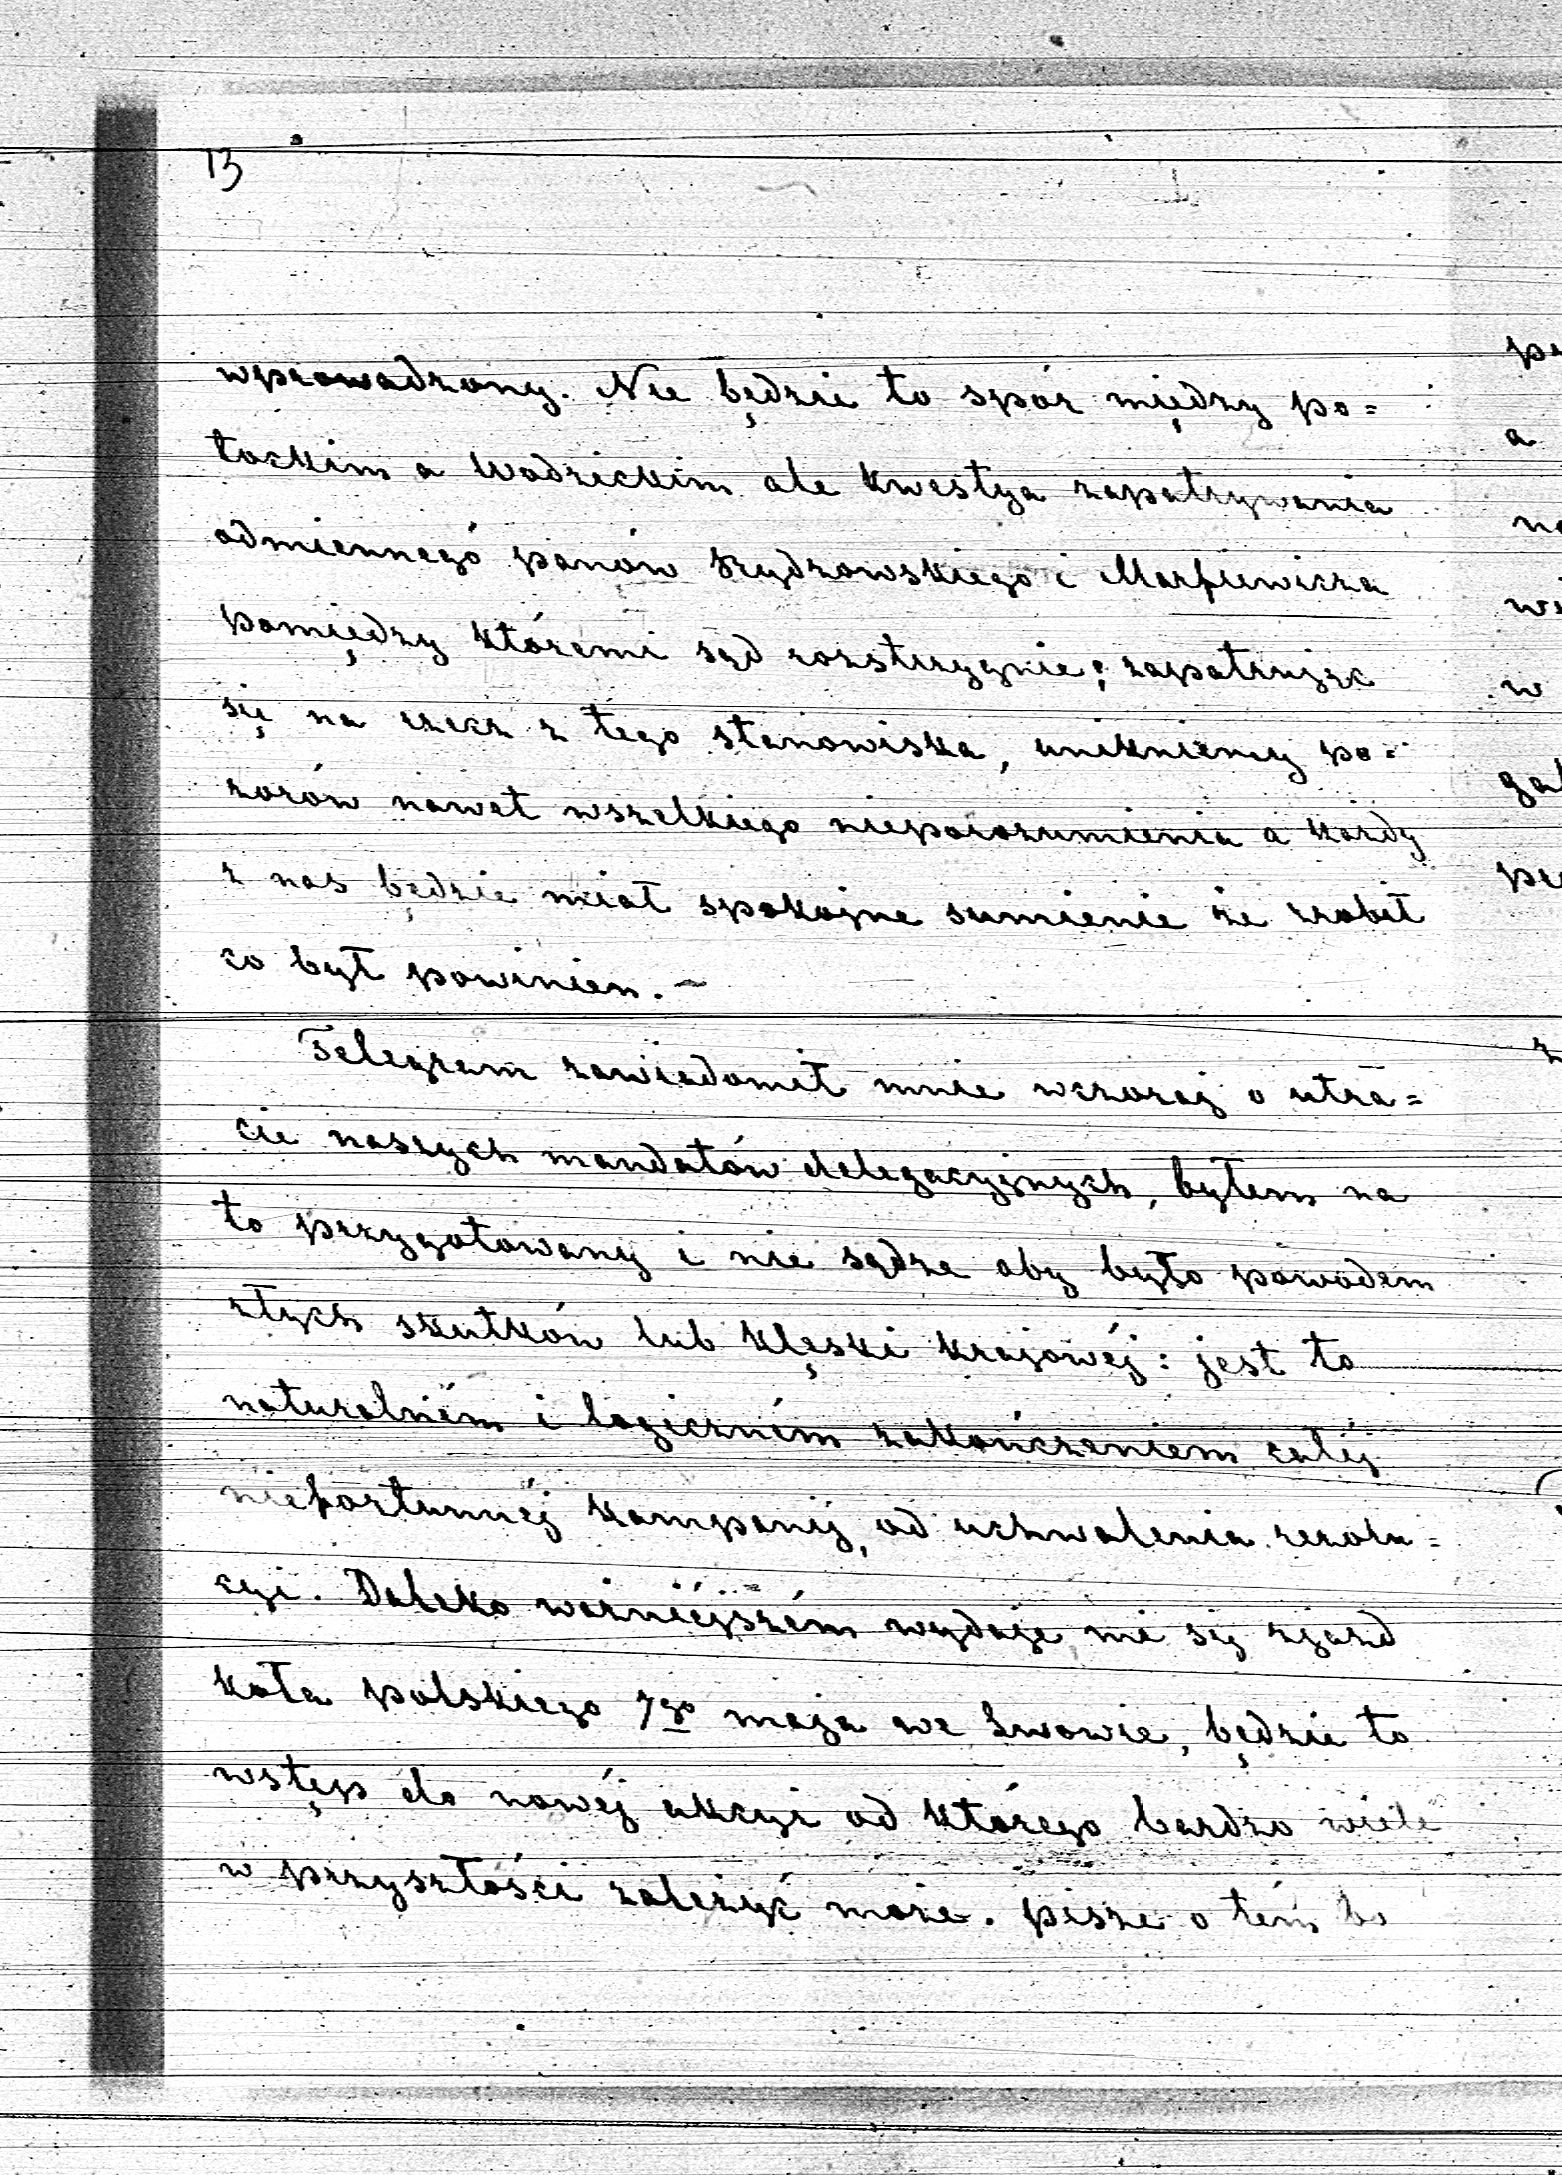 13
wprowadzony. Nie będzie to spór między po=
tockim a Wodzickim ale kwestya zapatrywania
odmiennego panów Szydzowskiego i Marfiewicza
pomiędzy któremi sąd rozstrzygnie; zapatrując
się na rzecz z tego stanowiska, unikniemy po=
zorów nawet wszelkiego nieporozumienia a każdy
z nas będzie miał spokojne sumienie że zrobił
co był powinien. –
Telegram zawiadomił mnie wczoraj o utra=
cie naszych mandatów delegacyjnych, byłem na
to przygotowany i nie sądzę aby było powodem
złych skutków lub klęski krajowéj: jest to
naturalném i logiczném zakończeniem całéj
niefortunnéj kampanij, od uchwalenia rezolu=
cyi. Daleko ważniéjszém wydaje mi się zjazd
koła polskiego 7go maja we Lwowie, będzie to
wstęp do nowéj akcyi od którego bardzo wiele
w przyszłości zależyć może. piszę o tém bo
pr
a
na
wi
w
gal
pr
z